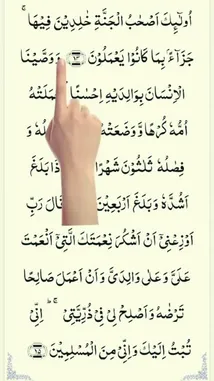 اُولٰٓئِكَ اَصْحٰبُ الْجَنَّةِ خٰلِدِيْنَ فِيْهَا ۚ
جَزَآءًۢ بِمَا كَانُوْا يَعْمَلُوْنَ ﴿۱۴﴾ وَوَصَّيْنَا
الْاِنْسَانَ بِوَالِدَيْهِ اِحْسٰنًا ؕ حَمَلَتْهُ
اُمُّهٗ كُرْهًا وَّوَضَعَتْهُ وَ
فِصٰلُهٗ ثَلٰثُوْنَ شَهْرًا بَلَغَ
اَشُدَّهٗ وَبَلَغَ اَرْبَعِيْنَ قَالَ رَبِّ
اَوْزِعْنِيْٓ اَنْ اَشْكُرَ نِعْمَتَكَ الَّتِيْٓ اَنْعَمْتَ
عَلَيَّ وَعَلٰى وَالِدَيَّ وَاَنْ اَعْمَلَ صَالِحًا
تَرْضٰىهُ وَاَصْلِحْ لِيْ فِيْ ذُرِّيَّتِيْ ؕۚ اِنِّيْ
تُبْتُ اِلَيْكَ وَاِنِّيْ مِنَ الْمُسْلِمِيْنَ ﴿۱۵﴾